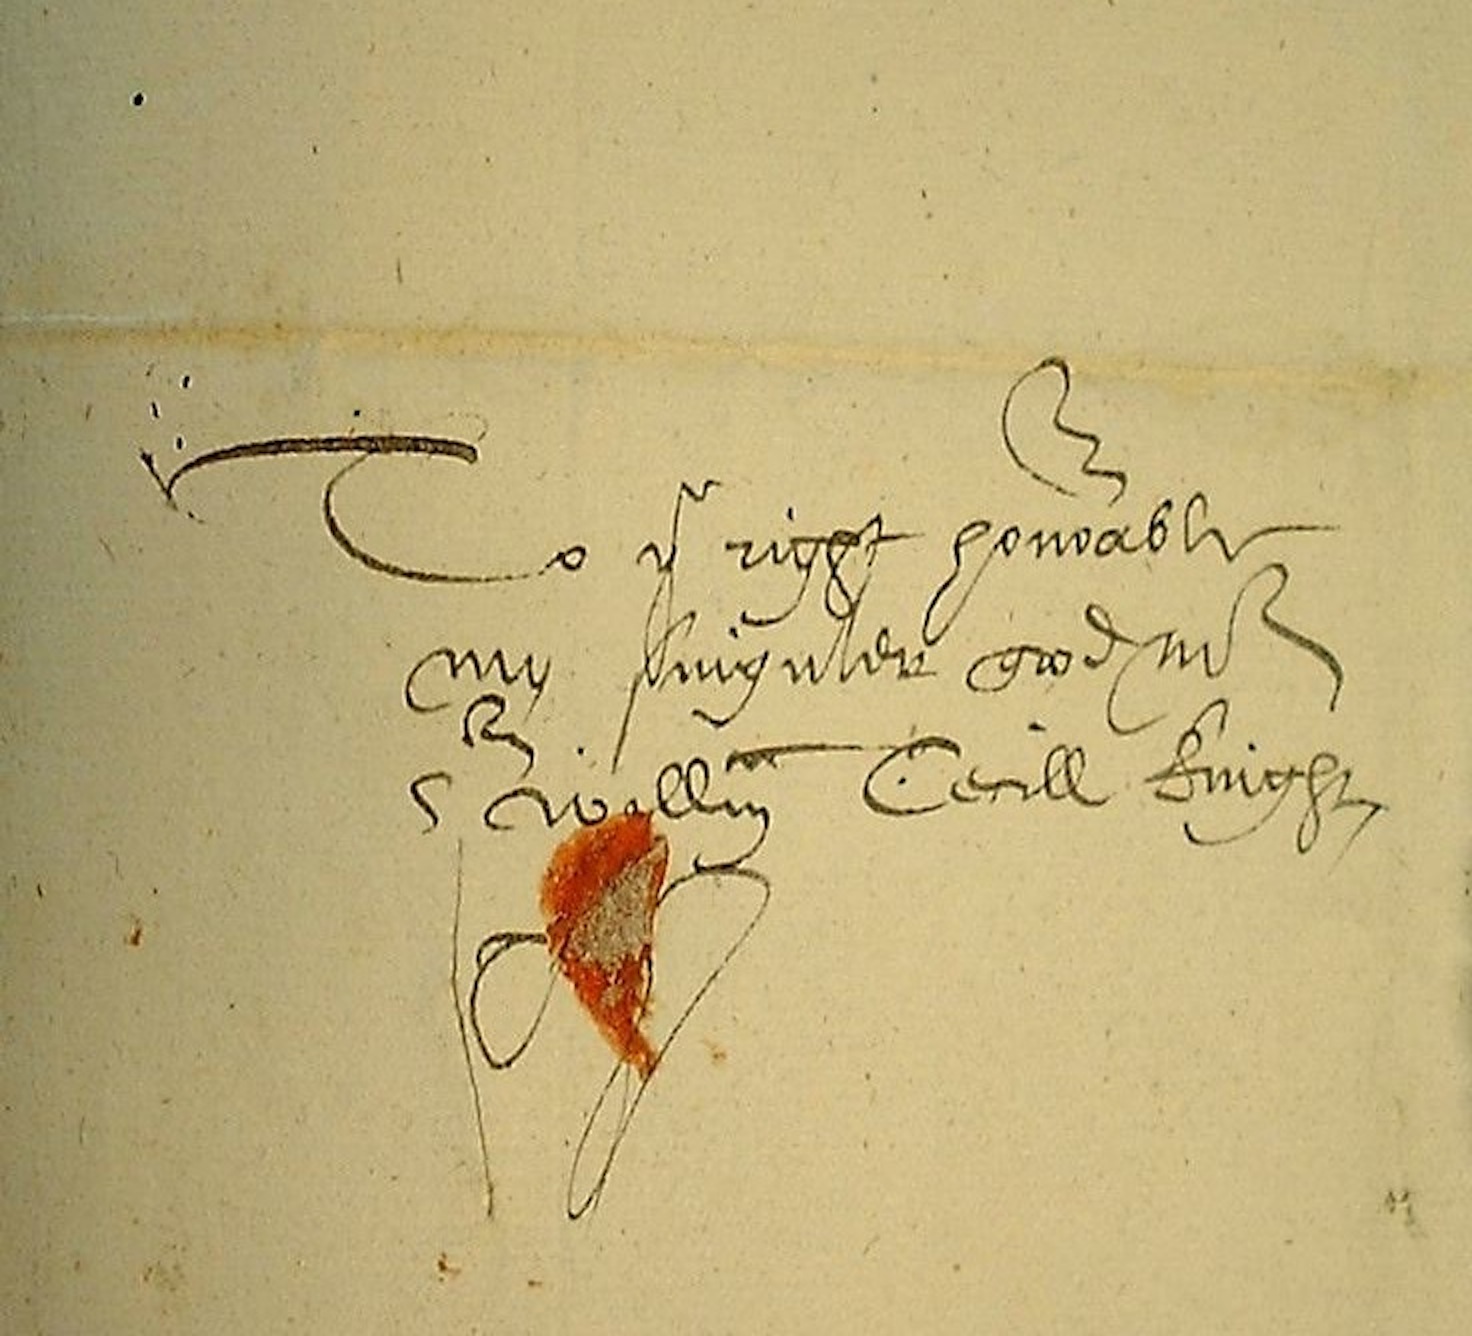 To yͤ right honorable
my singuler good mr
Sr Willm Cecill knight